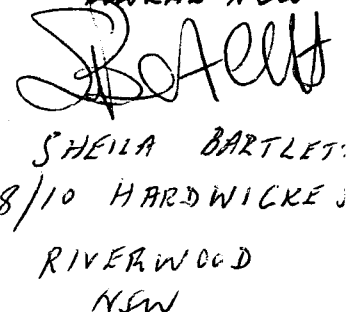 NSW
SHEILA BARTLETT
8/10 HARDWICKE S
RIVERWOOD
NSW